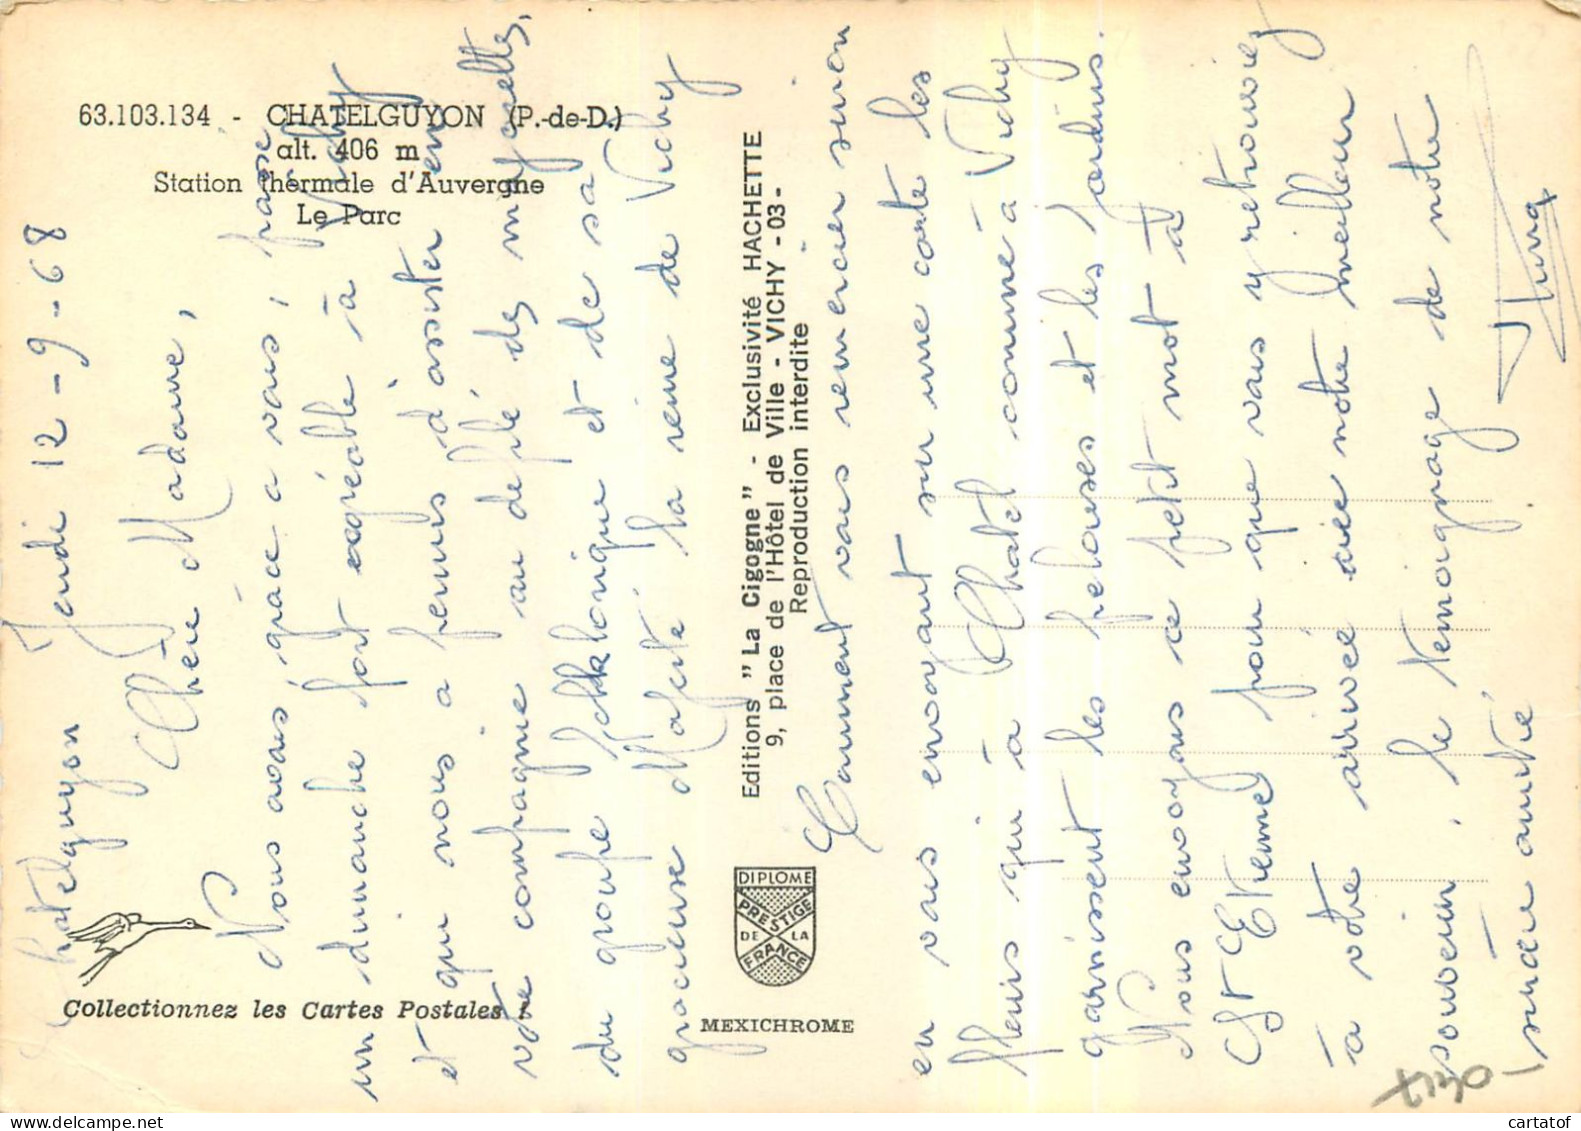 63.103.134 - CHATELGUYON (P.-de-D.)
alt. 406 m
Station thermale d'Auvergne
Le Parc
Collectionnez les Cartes Postales !
Editions "La Cigogne" - Exclusivité HACHETTE
9, place de l'Hôtel de Ville - VICHY - 03 -
Reproduction interdite
DIPLOME
PRESTIGE
DE LA
FRANCE
MEXICHROME
Chatelguyon Jeudi 12-9-68
Chère Madame,
Nous avons grâce à vous, passé
un dimanche fort agréable à Vichy
et qui nous a permis d'assister en
votre compagnie au défilé de majorettes,
du groupe folklorique et de sa
gracieuse Majesté la reine de Vichy
Comment vous remercier sinon
en vous envoyant sur une carte les
fleurs qui à Chatel comme à Vichy
garnissent les pelouses et les jardins.
Nous envoyons ce petit mot à
St Etienne pour que vous y retrouviez
à votre arrivée avec notre meilleur
souvenir, le témoignage de notre
sincère amitié
cartatof